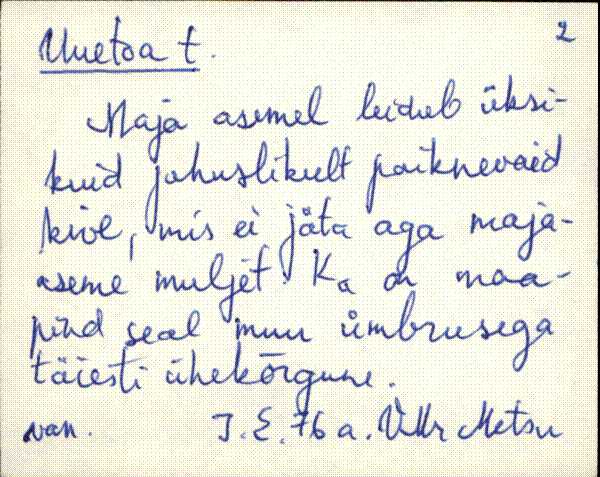 Uuetoa t.
2
Maja asemel leidub üksi-
kuid juhuslikult paiknevaid
kive, mis ei jäta aga maja-
aseme muljet. Ka on maa-
pind seal muu ümbrusega
täiesti ühekõrgune.
van. J. E. 76 a. V. Mr Metsu